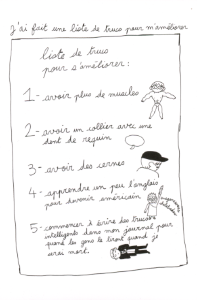 J'ai fait une liste de trucs pour m'améliorer
liste de trucs
pour s'améliorer :
1 - avoir plus de muscles
2 - avoir un collier avec une
dent de requin
3 - avoir des cernes
4 - apprendre un peu l'anglais
pour devenir américain
5 - commencer à écrire des trucs
intelligents dans mon journal pour
quand les gens le liront quand je
serai mort.